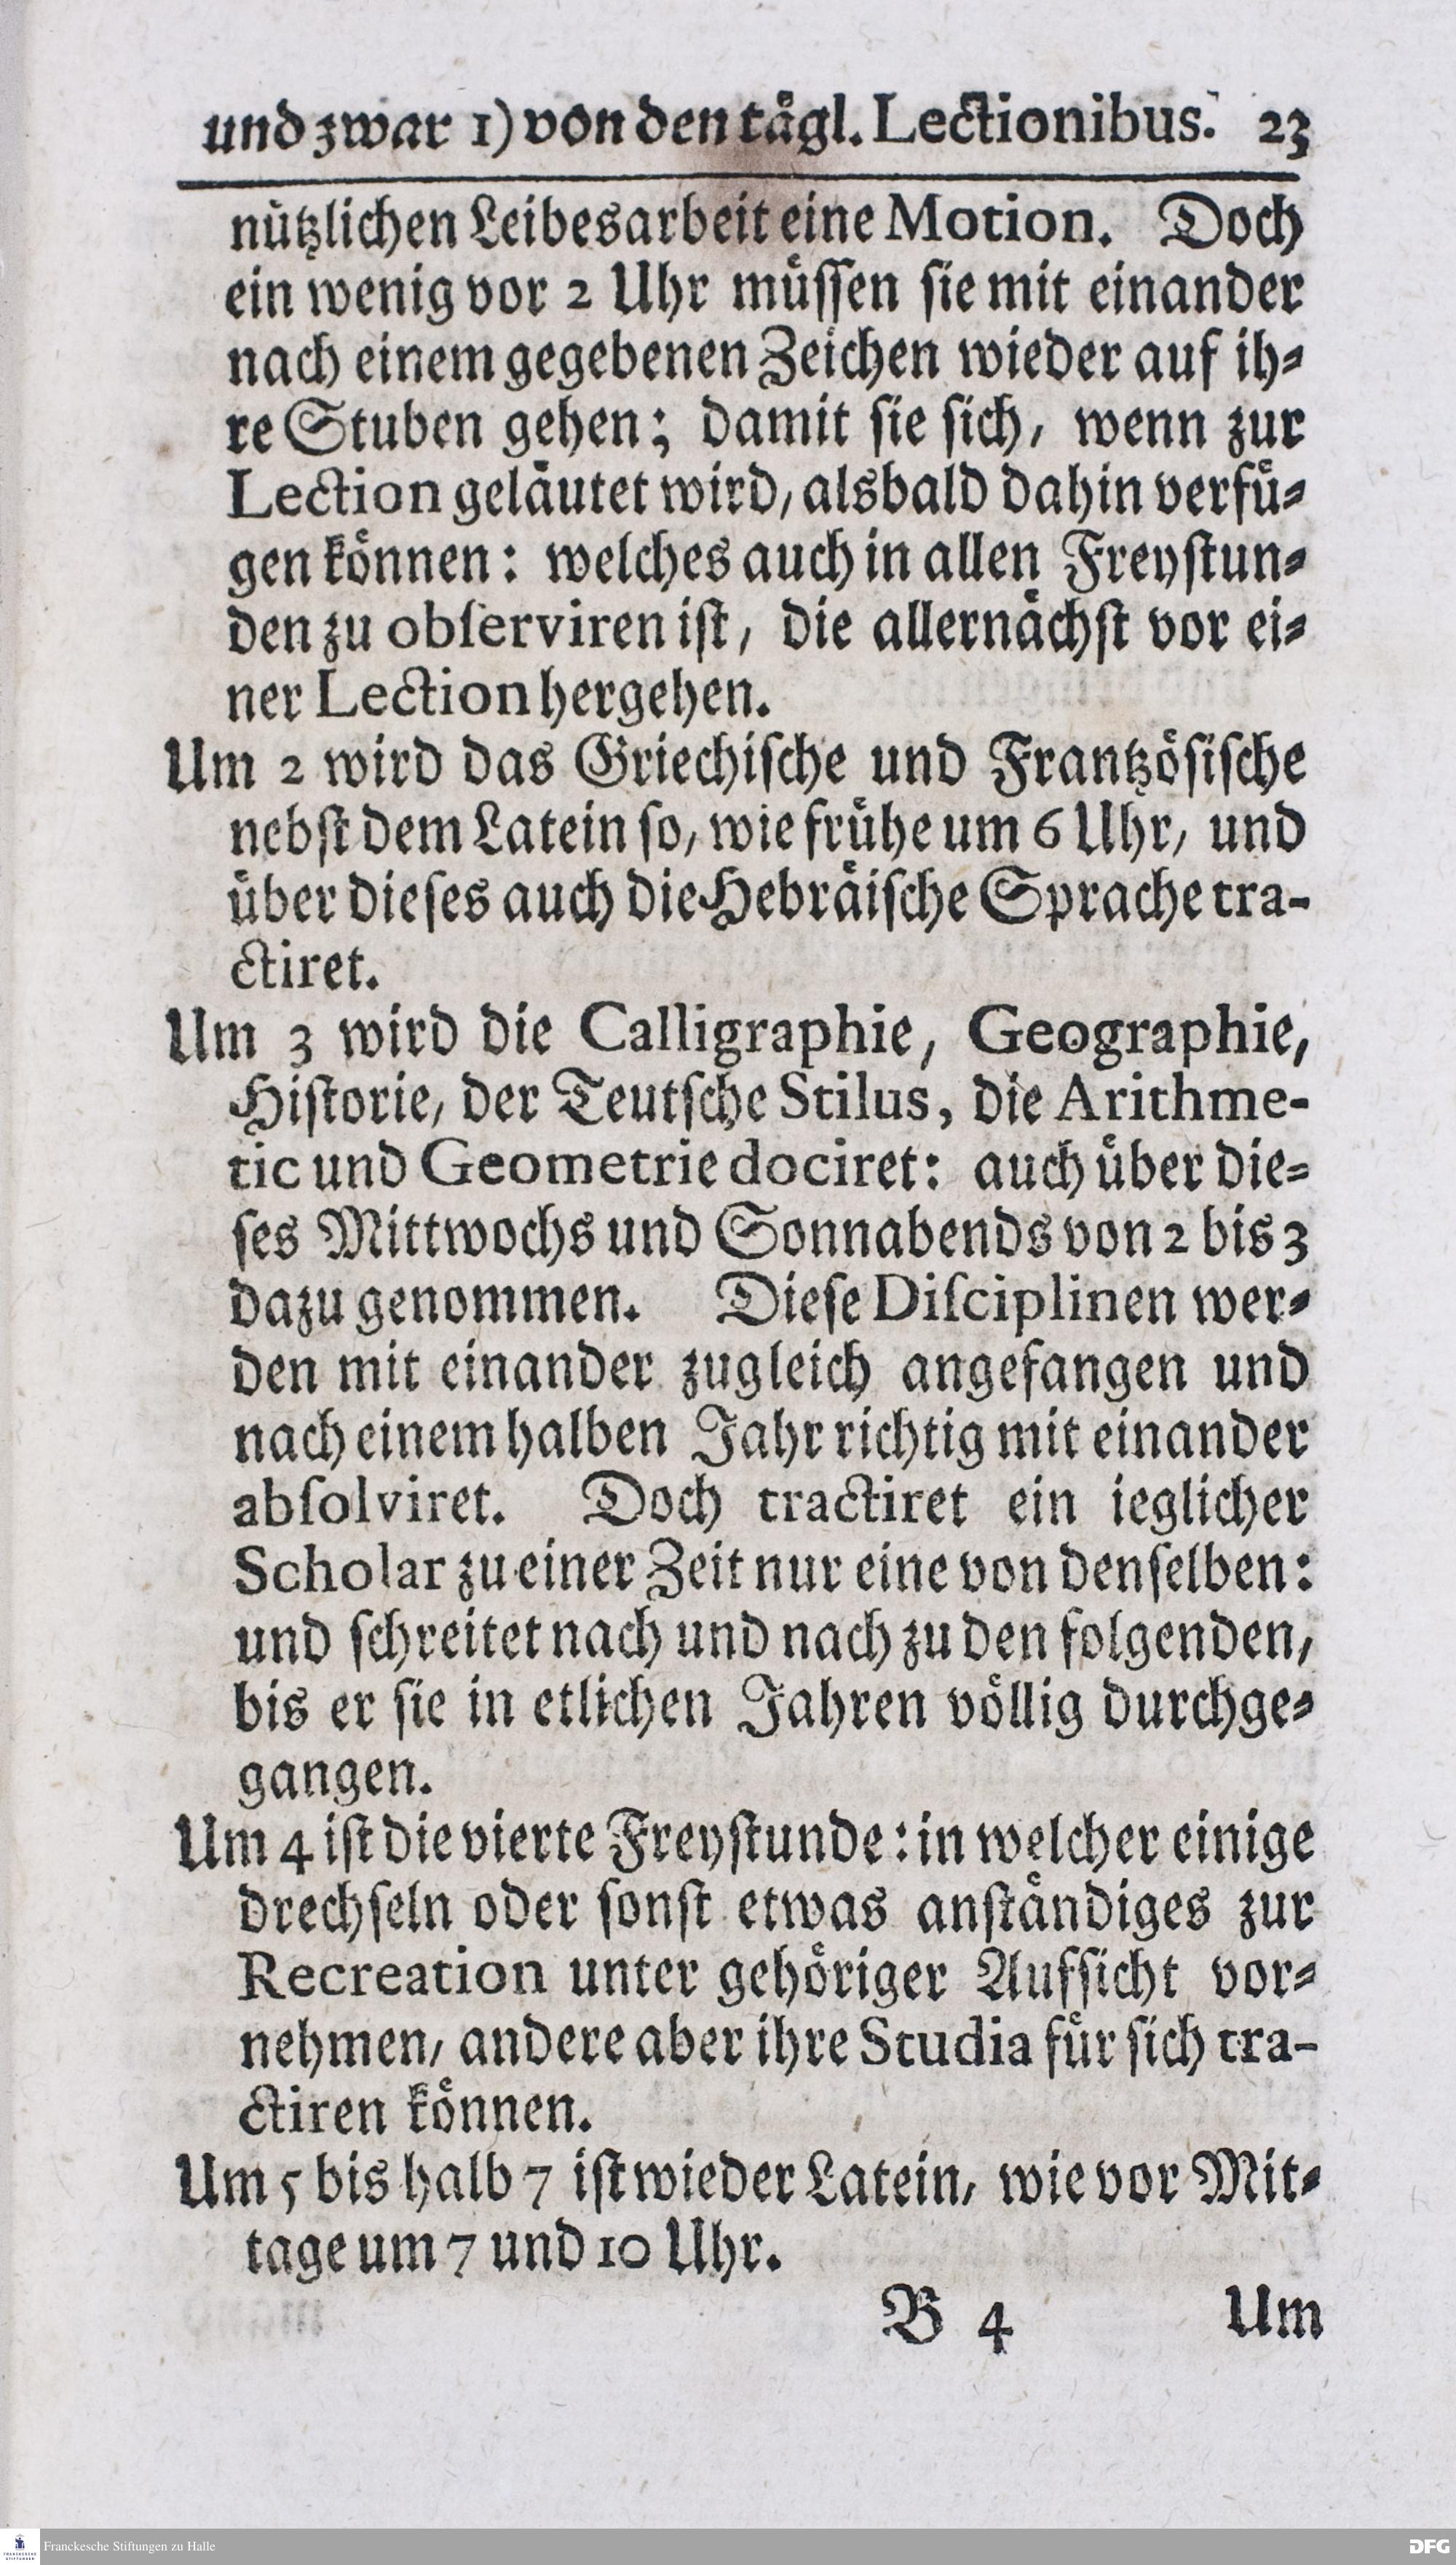 und zwar 1) von den tägl. Lectionibus. 23
nützlichen Leibesarbeit eine Motion. Doch
ein wenig vor 2 Uhr müſſen ſie mit einander
nach einem gegebenen Zeichen wieder auf ih⸗
re Stuben gehen; damit ſie ſich, wenn zur
Lection geläutet wird, alsbald dahin verfü⸗
gen können: welches auch in allen Freyſtun⸗
den zu obſerviren iſt, die allernächſt vor ei⸗
ner Lection hergehen.
Um 2 wird das Griechiſche und Frantzöſiſche
nebſt dem Latein ſo, wie frühe um 6 Uhr, und
über dieſes auch die Hebräiſche Sprache tra-
ctiret.
Um 3 wird die Calligraphie, Geographie,
Hiſtorie, der Teutſche Stilus, die Arithme-
tic und Geometrie dociret: auch über die⸗
ſes Mittwochs und Sonnabends von 2 bis 3
dazu genommen. Dieſe Diſciplinen wer⸗
den mit einander zugleich angefangen und
nach einem halben Jahr richtig mit einander
abſolviret. Doch tractiret ein ieglicher
Scholar zu einer Zeit nur eine von denſelben:
und ſchreitet nach und nach zu den folgenden,
bis er ſie in etlichen Jahren völlig durchge⸗
gangen.
Um 4 iſt die vierte Freyſtunde: in welcher einige
drechſeln oder ſonſt etwas anſtändiges zur
Recreation unter gehöriger Aufſicht vor⸗
nehmen, andere aber ihre Studia für ſich tra-
ctiren können.
Um 5 bis halb 7 iſt wieder Latein, wie vor Mit⸗
tage um 7 und 10 Uhr.
B 4 Um
Franckesche Stiftungen zu Halle
DFG